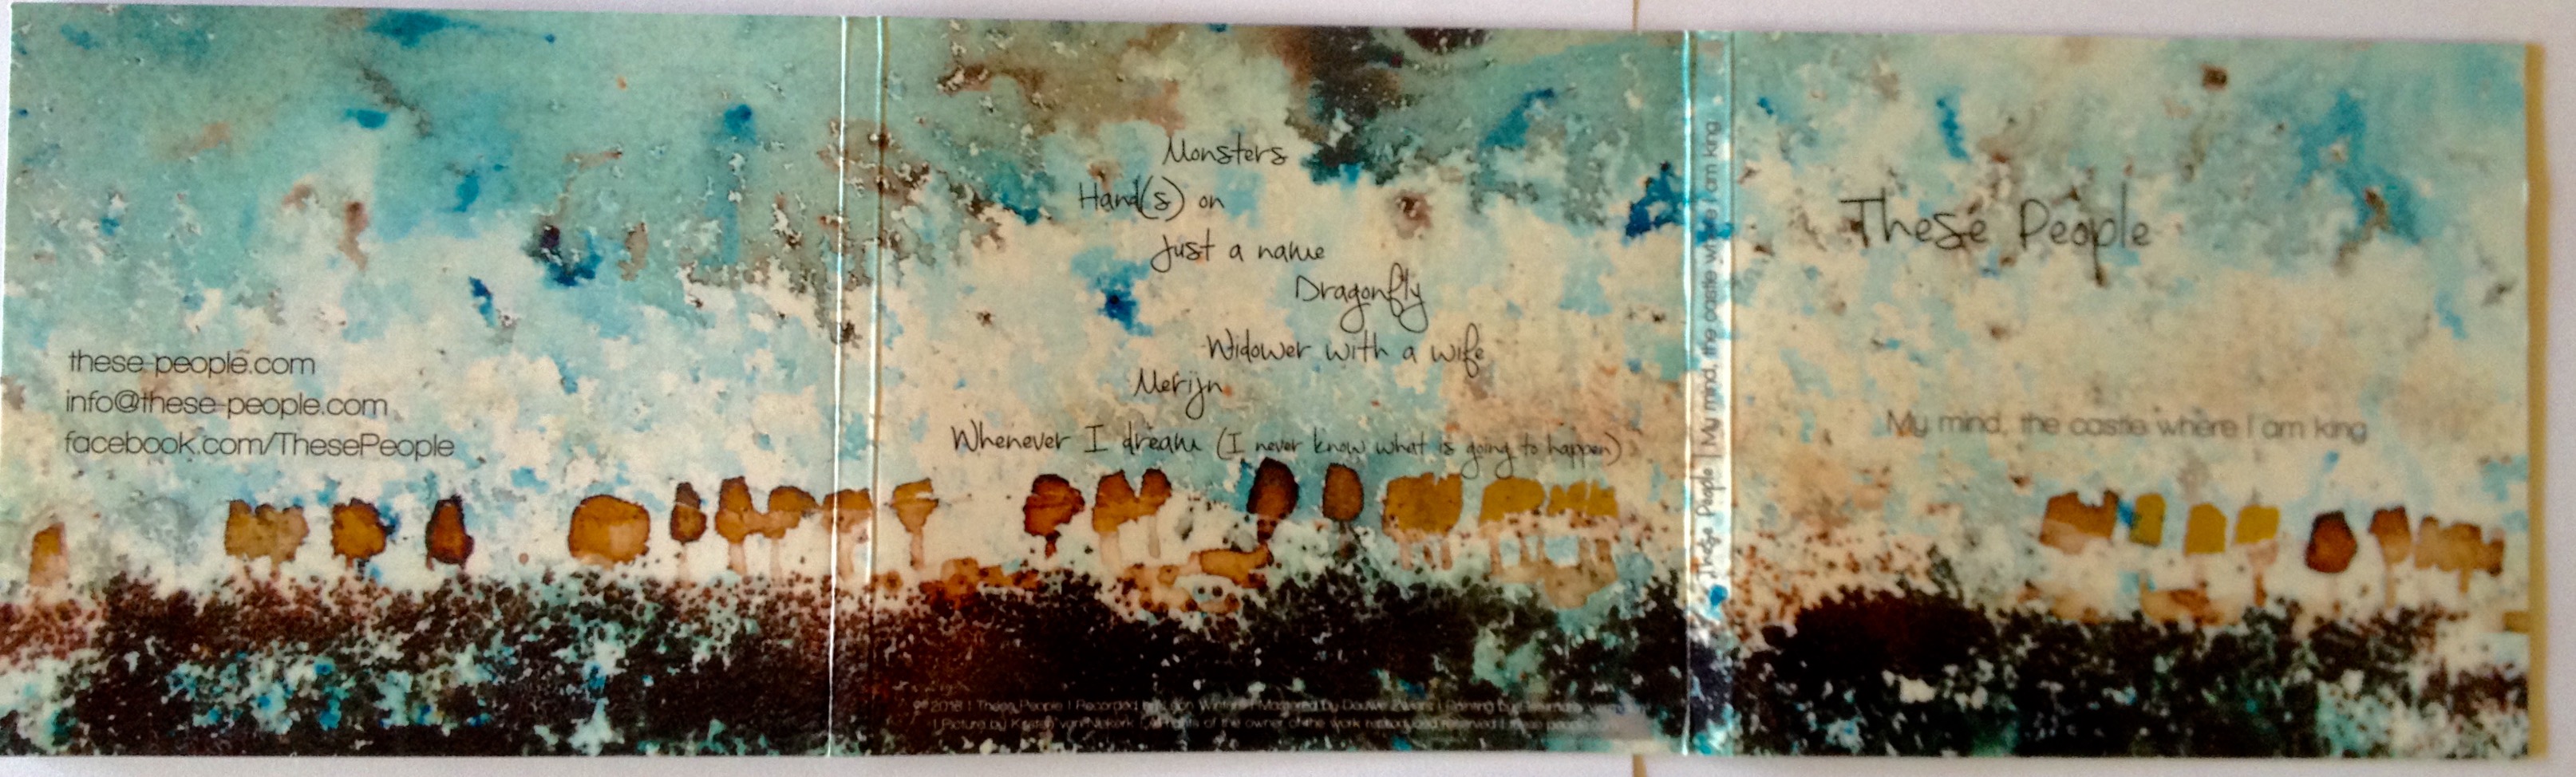 these-people.com
info@these-people.com
facebook.com/ThesePeople
Monsters
Hand(s) on
Just a name
Dragonfly
Widower with a wife
Merijn
Whenever I dream (I never know what is going to happen)
2018 | These People | Recorded by Mastered by Douwe Painting by
| Picture by Kirsten van | All rights of the owner of the work reproduced reserved | these-people
These People | My mind, the castle where I am king
These People
My mind, the castle where I am king